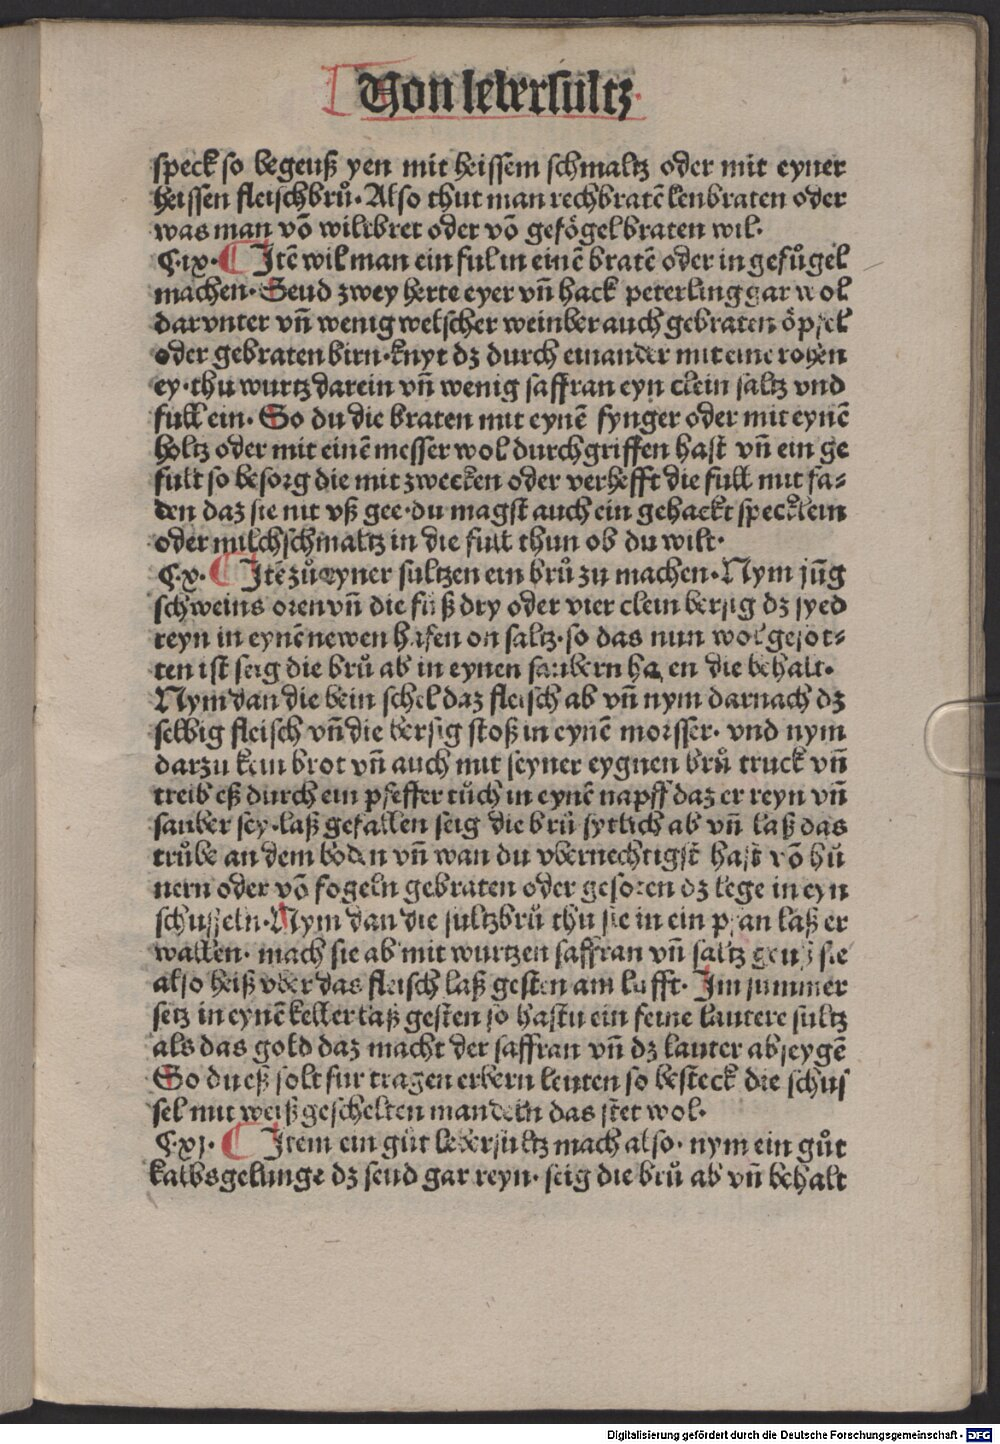 Von lebersultz
speck so begeuß yen mit heissem schmaltz oder mit eyner
heissen fleischbrů. Also thut man rechbratē lenbraten oder
was man vō wiltbret oder vō gefögel braten wil.
C.ix. Itē wil man ein ful in einē bratē oder in gefůgel
machen. Seud zwey herte eyer vñ hack peterling gar wol
darvnter vñ wenig welscher weinber auch gebraten öpfel
oder gebraten birn. knyt dz durch einander mit eine rohen
ey. thu wurtz darein vñ wenig saffran eyn clein saltz vnd
full ein. So du die braten mit eynē fynger oder mit eynē
holtz oder mit einē messer wol durchgriffen hast vñ ein ge
fult so besorg die mit zwecken oder verhefft die full mit fa-
den daz sie nit vß gee. du magst auch ein gehackt specklein
oder milchschmaltz in die full thun ob du wilt.
C.x. Itē zů eyner sultzen ein brů zu machen. Nym jūg
schweins oren vñ die füß dry oder vier clein bersig dz syed
reyn in eynē newen hafen on saltz. so das nun wol gesot-
ten ist seig die brů ab in eynen saubern hafen die behalt.
Nym dan die bein schel daz fleisch ab vñ nym darnach dz
selbig fleisch vñ die bersig stoß in eynē morsser. vnd nym
darzu kein brot vñ auch mit seyner eygnen brů truck vñ
treib eß durch ein pfeffer tůch in eynē napff daz er reyn vñ
sauber sey. laß gefallen seig die brů sytlich ab vñ laß das
trůbe an dem boden vñ wan du vbernechtigst hast vō hů
nern oder vō fogeln gebraten oder gesoten dz lege in eyn
schusseln. Nym dan die sultzbrů thu sie in ein pfan laß er
wallen. mach sie ab mit wurtzen saffran vñ saltz geuß sie
also heiß vber das fleisch laß gesten am lufft. Im summer
setz in eynē keller laß gesten so hastu ein feine lautere sultz
als das gold daz macht der saffran vñ dz lauter abseygē
So du eß solt fur tragen erbern leuten so besteck die schus
sel mit weiß geschelten mandeln das stet wol.
C.xj. Item ein gůt lebersultz mach also. nym ein gůt
kalbsgelunge dz seud gar reyn. seig die brů ab vñ behalt
Digitalisierung gefördert durch die Deutsche Forschungsgemeinschaft - DFG